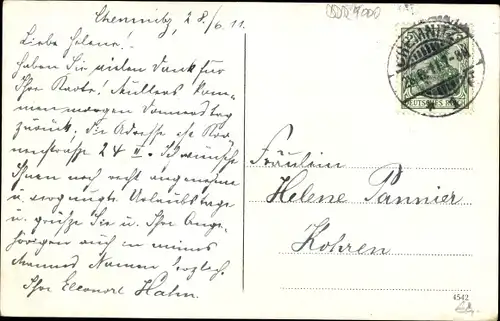 Chemnitz, 28./6.11.
Liebe Helene!
haben Sie vielen Dank für
Ihre Karte! Müllers kom-
men morgen Donnerstag
zurück. Die Adresse ist
straße 24 II. Ich wünsche
Ihnen noch recht angenehme
u. vergnügte Urlaubstage
u. grüße Sie u. Ihre Ange-
hörigen auch in meines
Mannes Namen herzlich.
Ihre Eleonore Hahn.
DDR 9000
CHEMNITZ
28.6.11
DEUTSCHES REICH
Fräulein
Helene Pannier
Kohren
4542